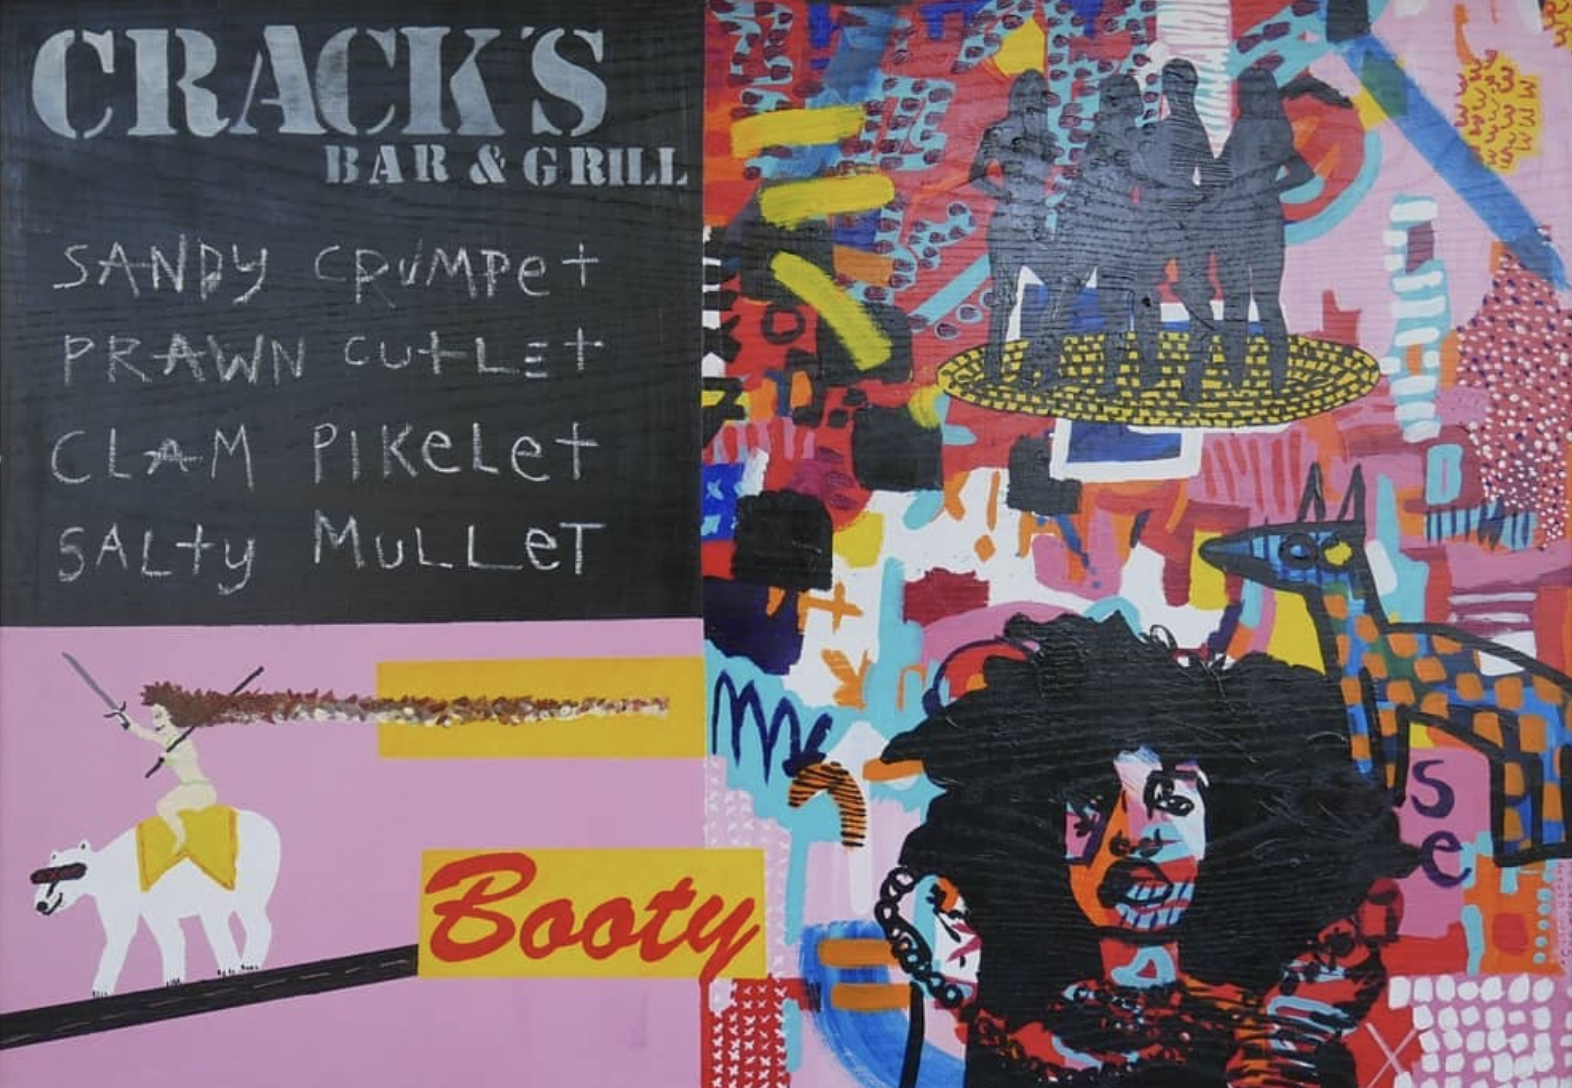 CRACK'S
BAR & GRILL
SANDY CRUMPet
PRAWN CUtLEt
CLAM PIKeLet
SALty MULLeT
Booty
se